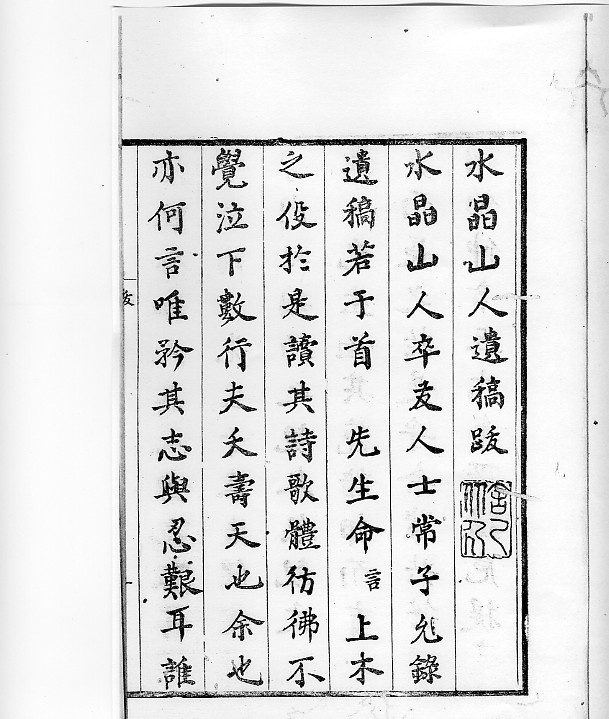 水晶山人遺稿跋
水晶山人卒友人士常子允錄
遺稿若干首 先生命言上木
之役於是讀其詩歌體彷彿不
覺泣下數行夫夭壽天也余也
亦何言唯矜其志與忍艱耳誰